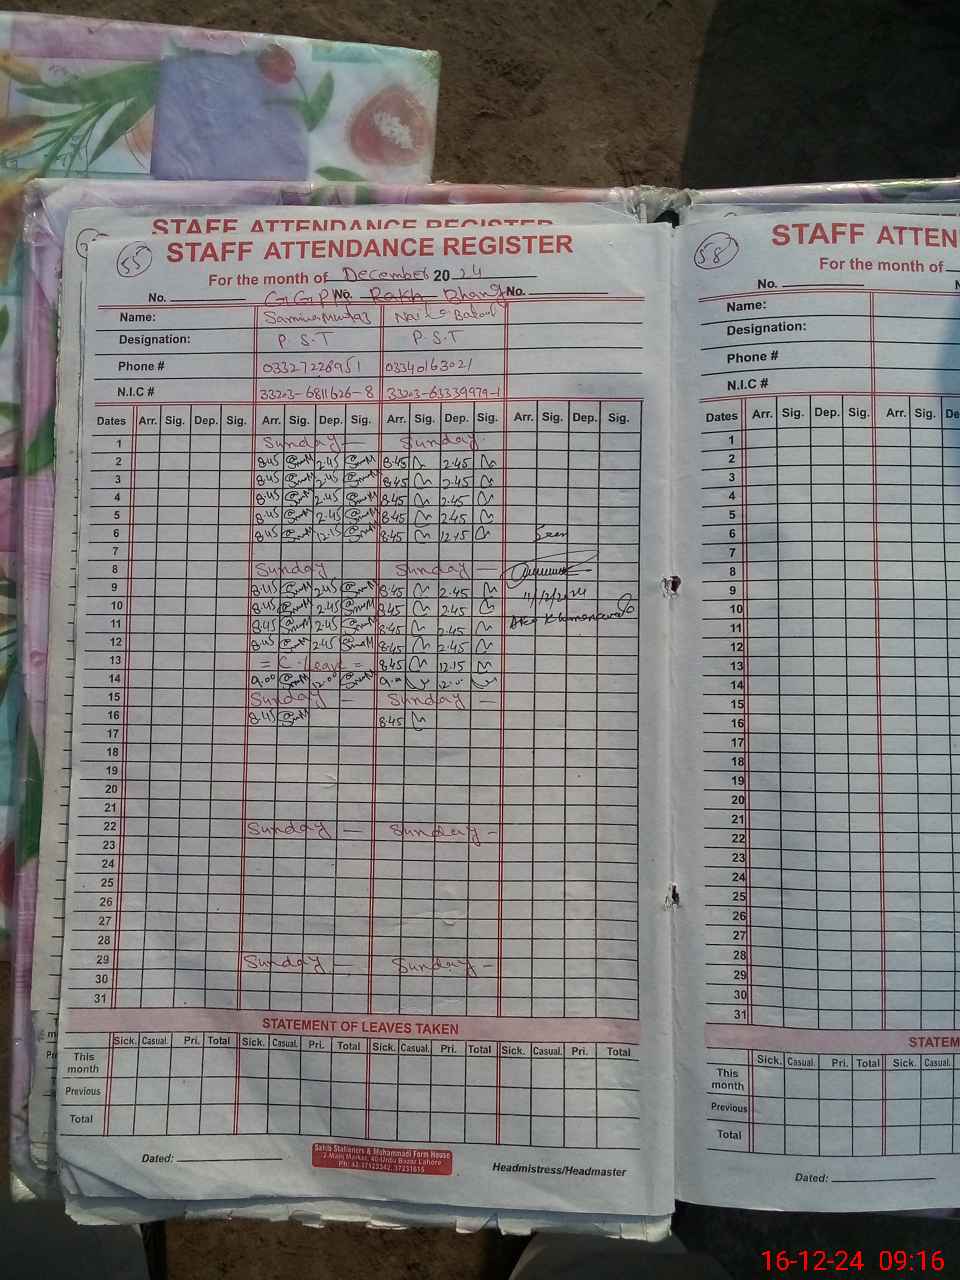 STAFF ATTENDANCE REGISTER
55 STAFF ATTENDANCE REGISTER
For the month of December 2024
No. GGPS No. Rakh Bhang No.
Name: Samina Mumtaz Naila Batool
Designation: P.S.T P.S.T
Phone # 03327228951 03340163021
N.I.C # 33203-6811626-8 33203-6333979-1
Dates Arr. Sig. Dep. Sig. Arr. Sig. Dep. Sig. Arr. Sig. Dep. Sig. Arr. Sig. Dep. Sig.
1 Sunday — Sunday
2 8:45 2:45 8:45 2.45
3 8:45 2:45 8:45 2.45
4 8:45 2:45 8:45 2.45
5 8:45 2:45 8:45 2.45
6 8:45 12:15 8:45 12.15 Seen
7
8 Sunday Sunday —
9 8:45 2:45 8:45 2.45 11/12/2024
10 8:45 2:45 8:45 2.45
11 8:45 2:45 8:45 2.45
12 8:45 2:45 8:45 2.45
13 = C. Leave = 8:45 12.15
14 9:00 12:00 9:00 12:00
15 Sunday — Sunday —
16 8:45 8:45
17
18
19
20
21
22 Sunday — Sunday -
23
24
25
26
27
28
29 Sunday — Sunday -
30
31
STATEMENT OF LEAVES TAKEN
Sick. Casual. Pri. Total Sick. Casual. Pri. Total Sick. Casual. Pri. Total Sick. Casual. Pri. Total
This month
Previous
Total
Dated:
Sakib Stationers & Muhammadi Form House
2-Main Market, 40-Urdu Bazar Lahore
Ph: 42-37123342, 37231615
Headmistress/Headmaster
58 STAFF ATTEN
For the month of
No.
Name:
Designation:
Phone #
N.I.C #
Dates Arr. Sig. Dep. Sig. Arr. Sig.
1
2
3
4
5
6
7
8
9
10
11
12
13
14
15
16
17
18
19
20
21
22
23
24
25
26
27
28
29
30
31
STATEM
Sick. Casual. Pri. Total Sick. Casual.
This month
Previous
Total
Dated:
16-12-24 09:16